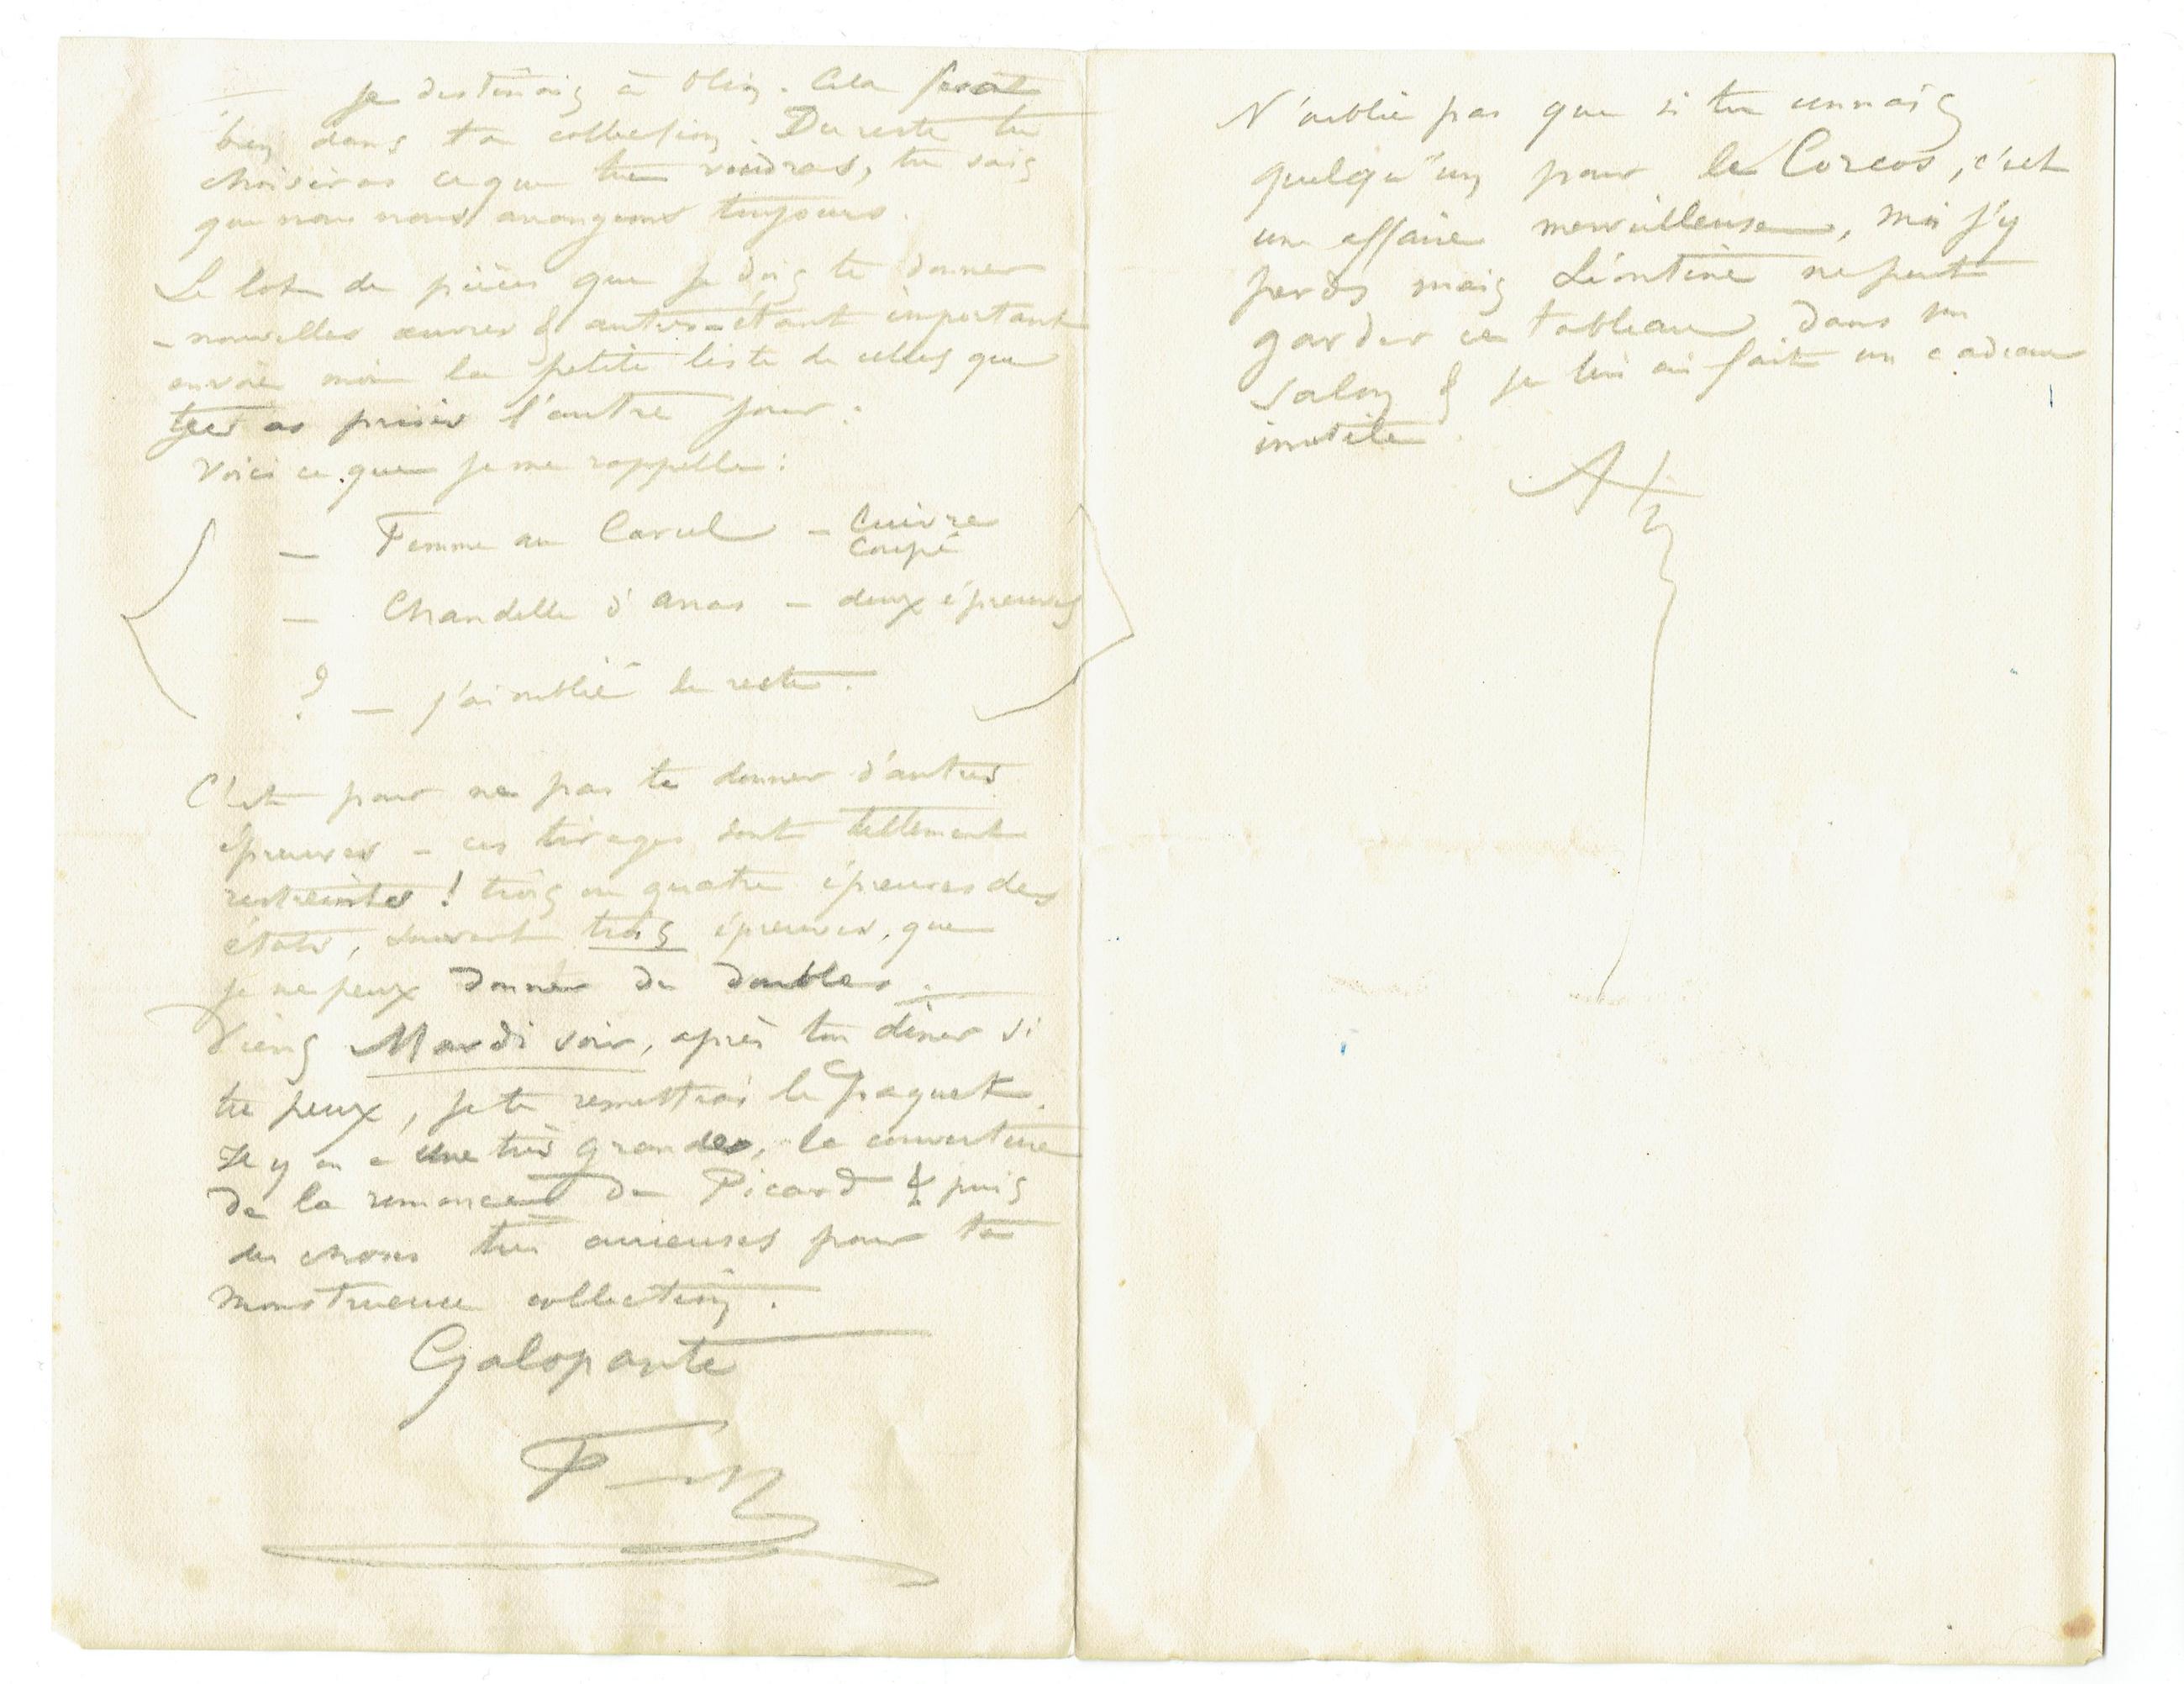 je destinais à Olin. Cela ferait
bien dans ta collection. Du reste tu
choisiras ce que tu voudras, tu sais
que nous nous arrangeons toujours.
Le lot de pièces que je dois te donner
– nouvelles œuvres & autres – étant important
envoie moi la petite liste de celles que
tu as prises l'autre jour :
Voici ce que je me rappelle :
– Femme au Carcel – Cuivre
coupé
– Chandelle d'arras – deux épreuves
? – j'ai oublié le reste.
C'est pour ne pas te donner d'autres
épreuves – ces tirages sont tellement
restreints ! trois ou quatre épreuves des
états, souvent trois épreuves, que
je ne peux donner de doubles.
Viens Mardi soir, après ton diner si
tu peux, je te remettrai le paquet.
Il y en a une très grande, la couverture
de la romance de Picard & puis
des choses très curieuses pour ta
monstrueuse collection.
Galopante
N'oublie pas que si tu connais
quelqu'un pour le Corcos, c'est
une affaire merveilleuse, moi j'y
perds mais Léontine ne peut
garder ce tableau dans son
salon & je lui ai fait un cadeau
inutile.